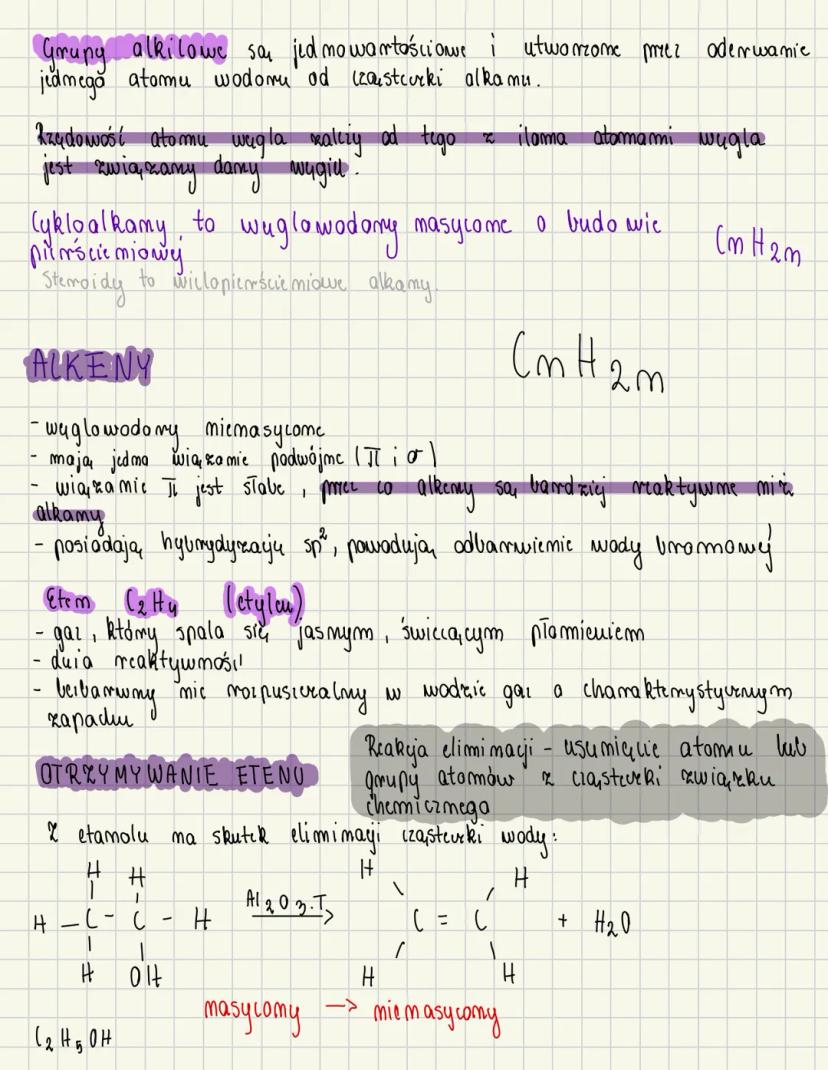 Grupy alkilowe są jednowartościowe i utworzone przez oderwanie
jednego atomu wodoru od cząsteczki alkanu.
Rzędowość atomu węgla zależy od tego z iloma atomami węgla
jest związany dany węgiel.
Cykloalkany to węglowodory nasycone o budowie
pierścieniowej
CnH2n
Steroidy to wielopierścieniowe alkany.
ALKENY
CnH2n
- węglowodory nienasycone
- mają jedno wiązanie podwójne (π i σ)
- wiązanie π jest słabe, przez co alkeny są bardziej reaktywne niż
alkany
- posiadają hybrydyzację sp², powodują odbarwienie wody bromowej
Eten C2H4 (etylen)
- gaz, który spala się jasnym, świecącym płomieniem
- duża reaktywność
- bezbarwny nie rozpuszczalny w wodzie gaz o charakterystycznym
zapachu
Reakcja eliminacji - usunięcie atomu lub
grupy atomów z cząsteczki związku
chemicznego
OTRZYMYWANIE ETENU
Z etanolu na skutek eliminacji cząsteczki wody:
H H H H
H - C - C - H Al2O3.T C = C + H2O
H OH H H
nasycony -> nienasycony
C2H5OH